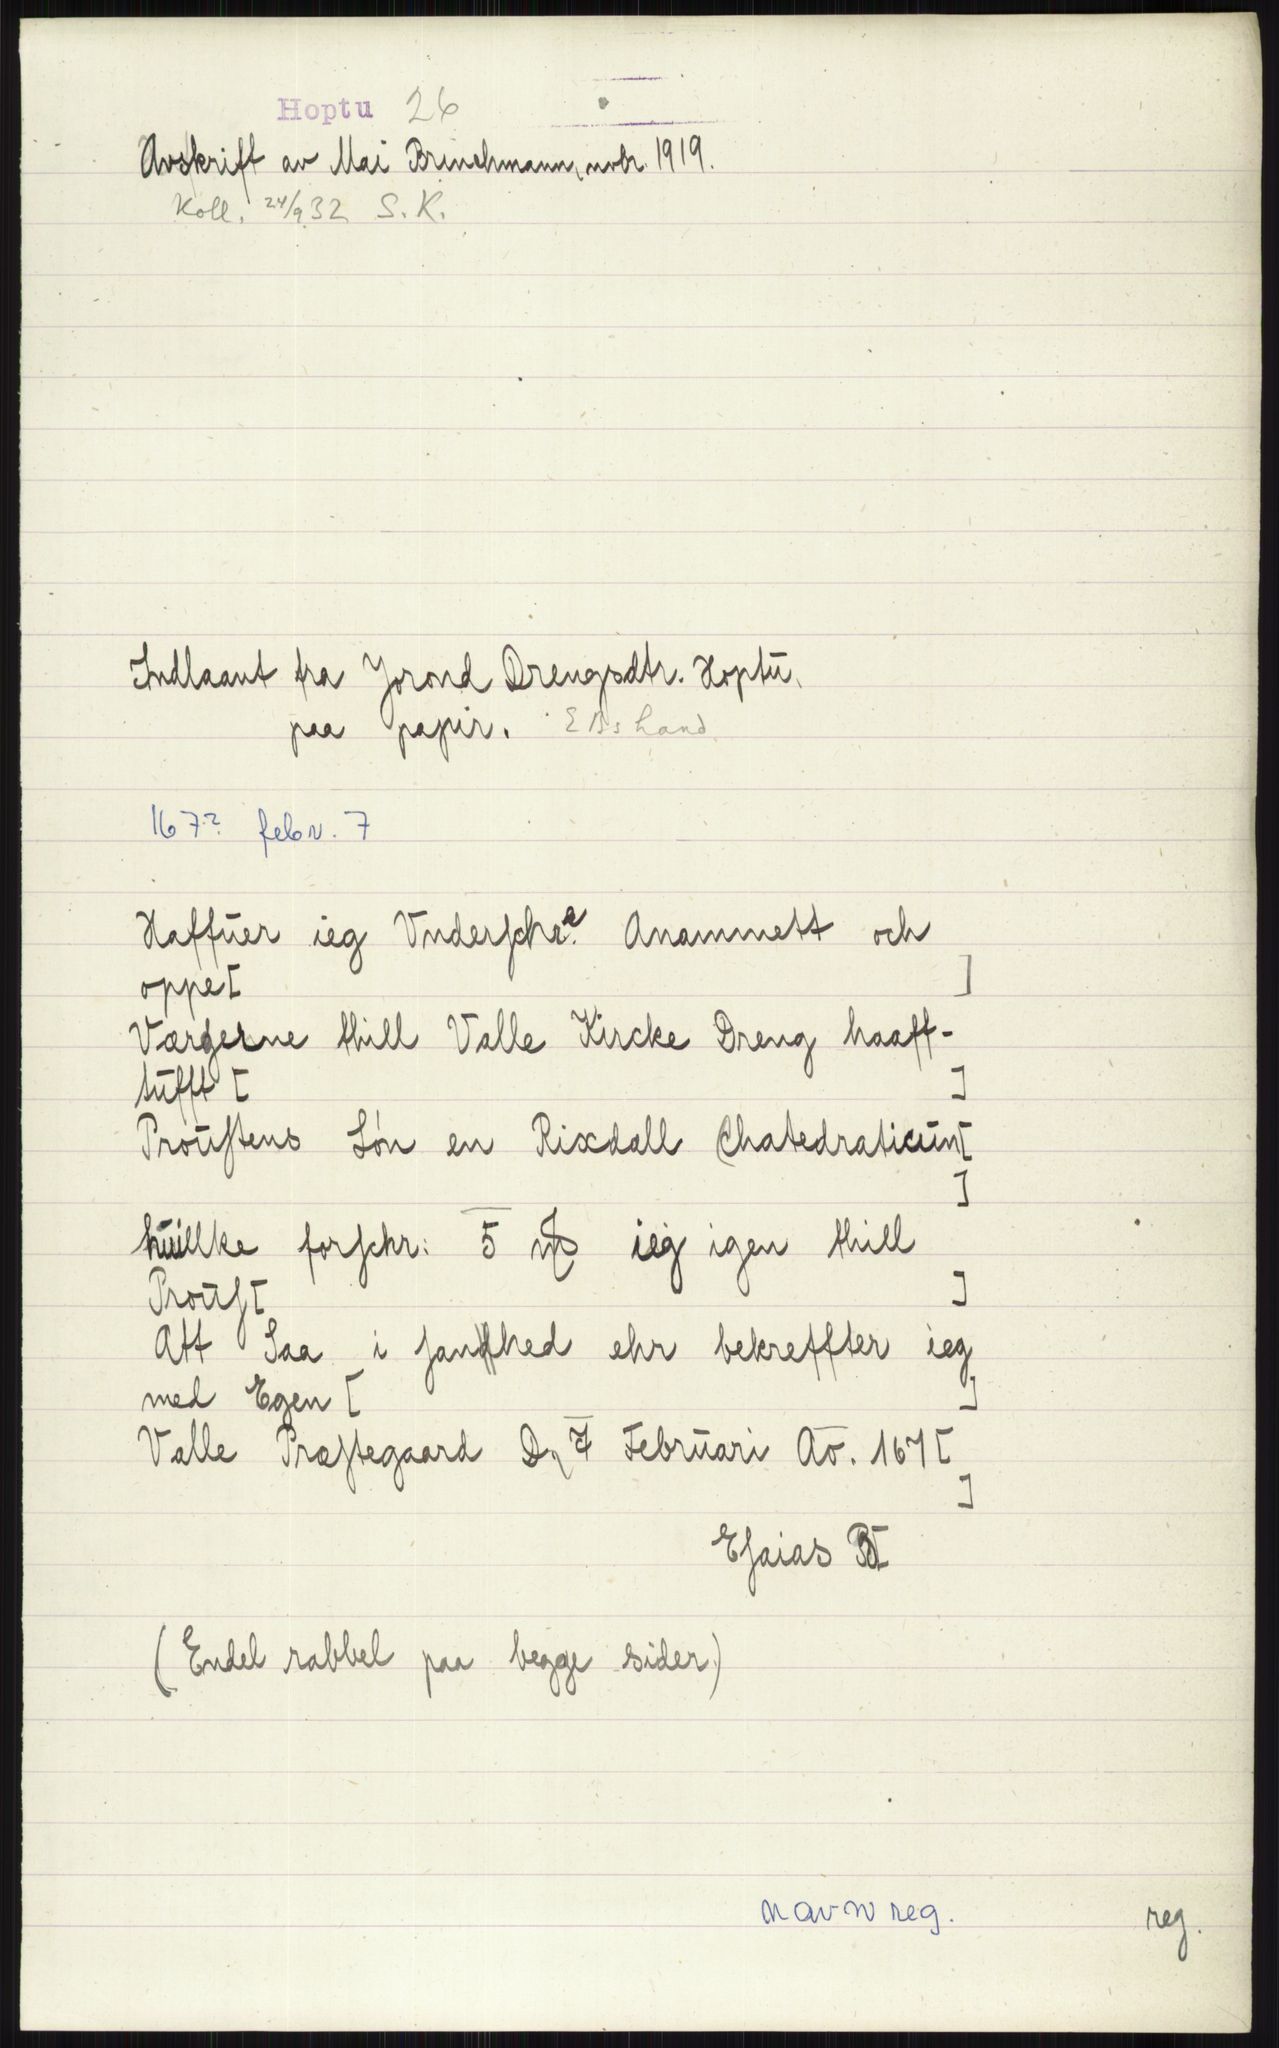 Hoptu 26
Avskrift av Mai Brinchmann, novbr. 1919.
Koll. 24/9 32 S. K.
Indlaant fra Jorond Drengsdtr. Hoptu,
paa papir. EBs hand
167? febr. 7
Haffuer ieg Vnderschre. Anammett och
oppe[ ]
Værgerne thill Valle Kircke Dreng haaff-
tufft [ ]
Proustens Løn en Rixdall Chatedraticum[
]
huillke forschr: 5 ieg igen thill
Proust[ ]
Att Saa i sandhed ehr bekreffter ieg
med Egen [ ]
Valle Præstegaard D. 7 Februari Ao. 167[
]
Esaias B[
(Endel rabbel paa begge sider)
navnreg.
reg.